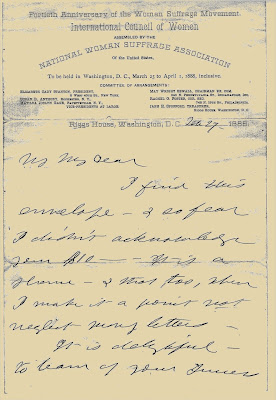 Fortieth Anniversary of the Woman Suffrage Movement.
International Council of Women
ASSEMBLED BY THE
NATIONAL WOMAN SUFFRAGE ASSOCIATION
Of the United States,
To be held in Washington, D. C., March 25 to April 1, 1888, inclusive
COMMITTEE OF ARRANGEMENTS:
ELIZABETH CADY STANTON, PRESIDENT,
NEW YORK.
SUSAN B. ANTHONY, ROCHESTER, N. Y.
MATILDA JOSLYN GAGE, FAYETTEVILLE, N. Y.
VICE-PRESIDENTS AT LARGE.
MAY WRIGHT SEWALL, CHAIRMAN EX. COM.
RACHEL G. FOSTER, COR. SEC.
JANE H. SPOFFORD, TREASURER,
RIGGS HOUSE, WASHINGTON, D. C.
Riggs House, Washington, D. C. 27 1888.
My My Dear
I find this
envelope - & so fear
I didn't acknowledge
your $10 — It is a
shame - & that too, when
I make it a point not
neglect money letters -
It is delightful -
to learn of your